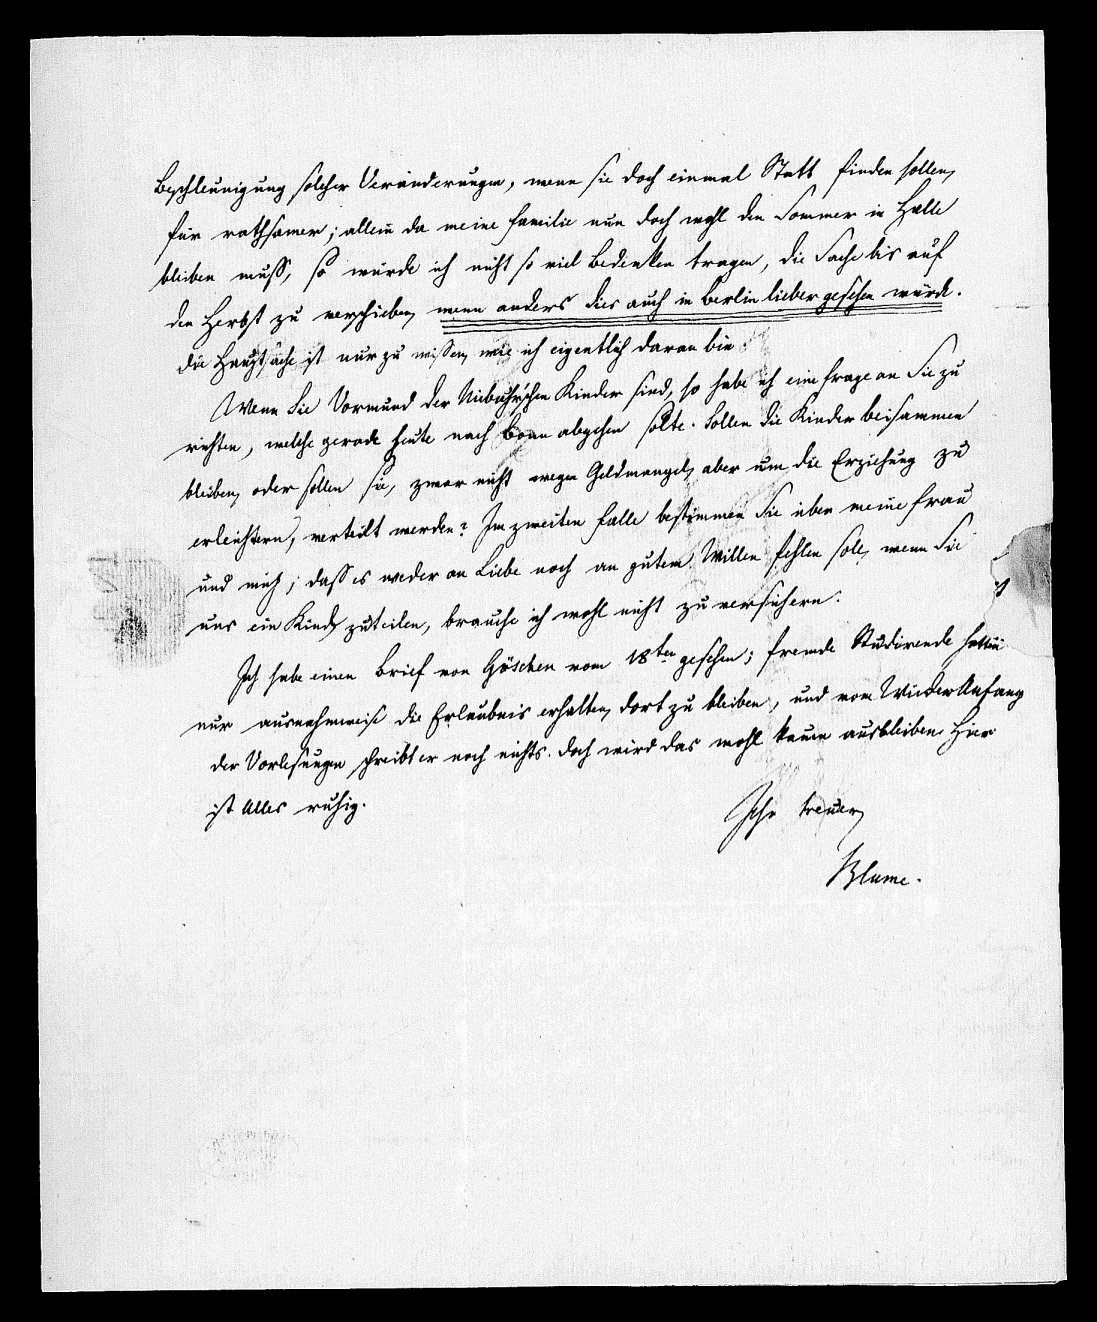 Beschleunigung solcher Veränderungen, wenn sie doch einmal Statt finden sollen,
für rathsamer; allein da meine Familie nun doch wohl den Sommer in Halle
bleiben muß, so würde ich nicht so viel Bedenken tragen, die Sache bis auf
den Herbst zu verschieben, wenn anders dies auch in Berlin lieber gesehen würde.
die Hauptsache ist nur zu wissen, wie ich eigentlich daran bin.
Wenn Sie Vormund der Niebuhr'schen Kinder sind, so habe ich eine Frage an Sie zu
richten, welche gerade heute nach Bonn abgehen sollte. Sollen die Kinder beisammen
bleiben, oder sollen sie, zwar nicht wegen Geldmangel, aber um die Erziehung zu
erleichtern, verteilt werden? Im zweiten Falle bestimmen Sie über meine Frau
und mich; daß es weder an Liebe noch an gutem Willen fehlen soll, wenn Sie
uns ein Kind zuteilen, brauche ich wohl nicht zu versichern.
Ich habe einen Brief von Göschen vom 18ten gesehen; fremde Studirende hatten
nur ausnahmweise die Erlaubnis erhalten, dort zu bleiben, und vom WiederAnfang
der Vorlesungen schreibt er noch nichts. doch wird das wohl kaum ausbleiben. Hier
ist Alles ruhig.
Ihr treuer
Blume.